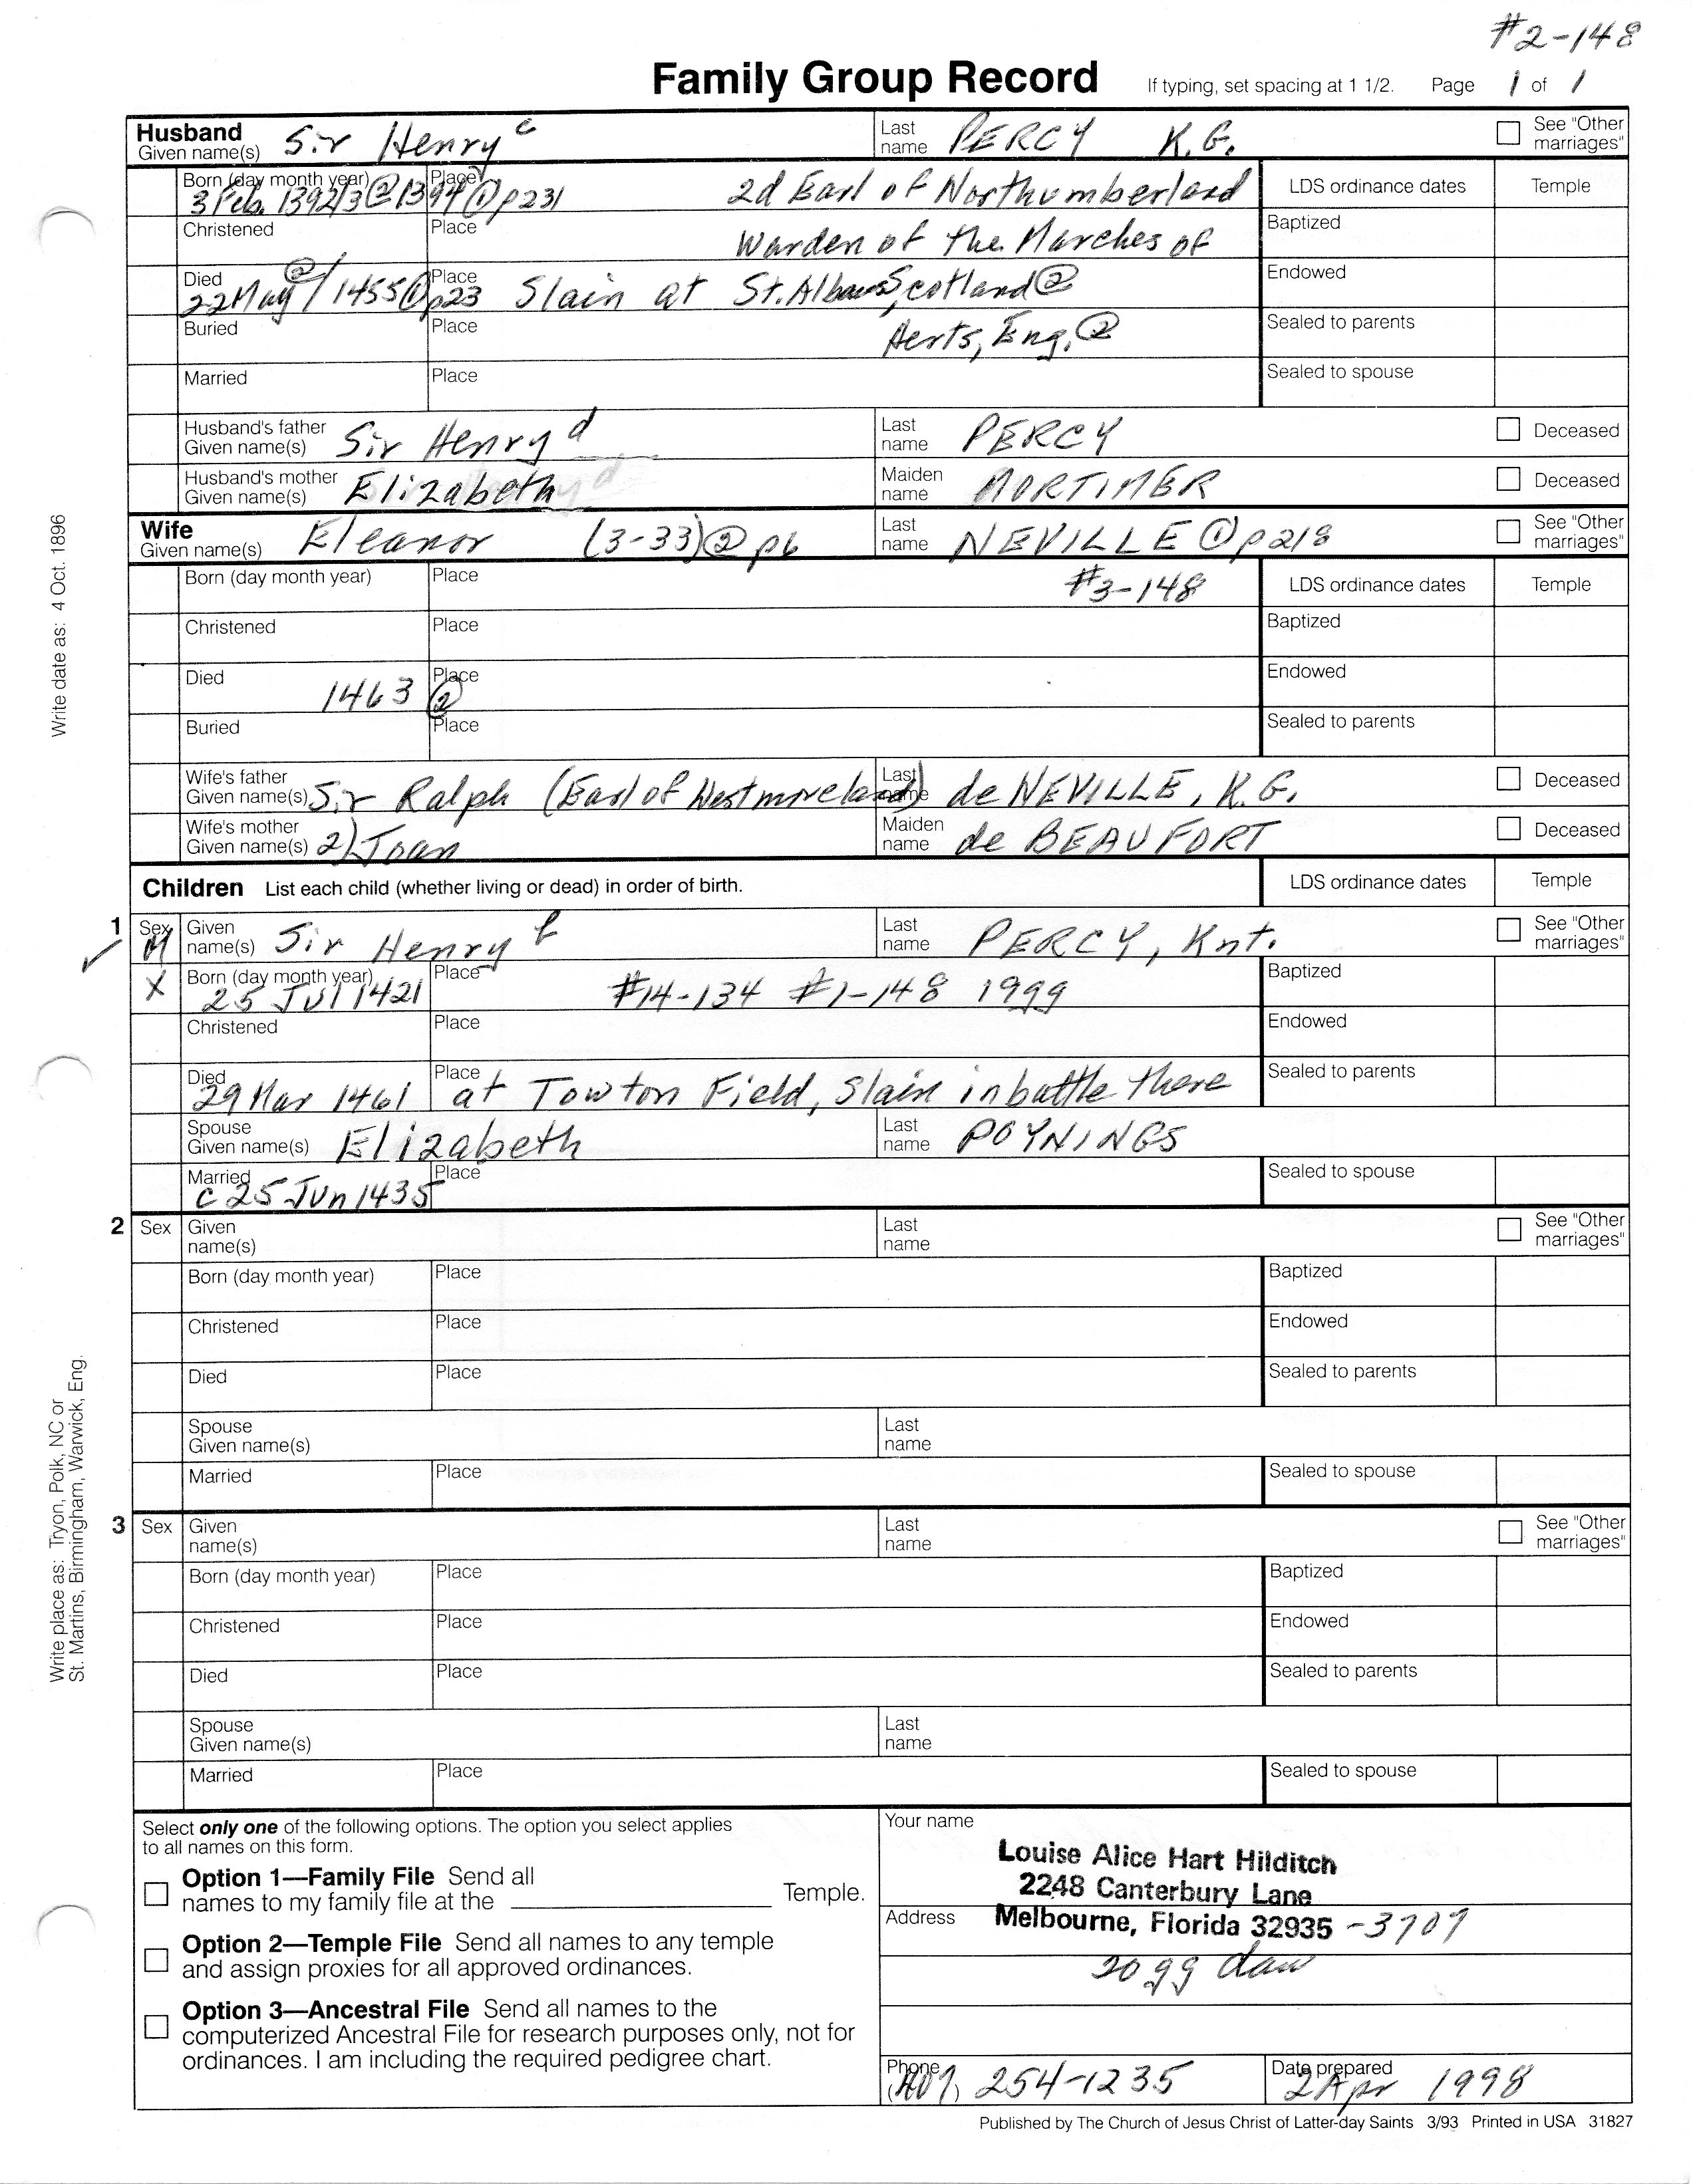 #2-148
Family Group Record If typing, set spacing at 1 1/2. Page 1 of 1
Husband
Given name(s) Sir Henry c Last name PERCY K.G. See "Other marriages"
Born (day month year) 3 Feb. 1392/3 ② 1394 ① p231 Place 2d Earl of Northumberland LDS ordinance dates Temple
Christened Place Warden of the Marches of Baptized
Died 22 May ② / 1455 ① p23 Place Slain at St. Albans, Scotland ② Endowed
Buried Place Herts, Eng. ② Sealed to parents
Married Place Sealed to spouse
Husband's father Given name(s) Sir Henry d Last name PERCY Deceased
Husband's mother Given name(s) Elizabeth Maiden name MORTIMER Deceased
Wife
Given name(s) Eleanor (3-33) ② p6 Last name NEVILLE ① p218 See "Other marriages"
Born (day month year) Place #3-148 LDS ordinance dates Temple
Christened Place Baptized
Died 1463 ② Place Endowed
Buried Place Sealed to parents
Wife's father Given name(s) Sir Ralph (Earl of Westmoreland) Last name de NEVILLE, K.G. Deceased
Wife's mother Given name(s) 2) Joan Maiden name de BEAUFORT Deceased
Children List each child (whether living or dead) in order of birth. LDS ordinance dates Temple
1 Sex M Given name(s) Sir Henry f Last name PERCY, Knt. See "Other marriages"
X Born (day month year) 25 Jul 1421 Place #14-134 #1-148 1999 Baptized
Christened Place Endowed
Died 29 Mar 1461 Place at Towton Field, Slain in battle there Sealed to parents
Spouse Given name(s) Elizabeth Last name POYNINGS
Married c 25 Jun 1435 Place Sealed to spouse
2 Sex Given name(s) Last name See "Other marriages"
Born (day month year) Place Baptized
Christened Place Endowed
Died Place Sealed to parents
Spouse Given name(s) Last name
Married Place Sealed to spouse
3 Sex Given name(s) Last name See "Other marriages"
Born (day month year) Place Baptized
Christened Place Endowed
Died Place Sealed to parents
Spouse Given name(s) Last name
Married Place Sealed to spouse
Write date as: 4 Oct. 1896
Write place as: Tryon, Polk, NC or
St. Martins, Birmingham, Warwick, Eng.
Select only one of the following options. The option you select applies
to all names on this form.
Option 1—Family File Send all
names to my family file at the Temple.
Option 2—Temple File Send all names to any temple
and assign proxies for all approved ordinances.
Option 3—Ancestral File Send all names to the
computerized Ancestral File for research purposes only, not for
ordinances. I am including the required pedigree chart.
Your name
Louise Alice Hart Hilditch
2248 Canterbury Lane
Address Melbourne, Florida 32935 -3707
Phone (407) 254-1235 Date prepared 2 Apr 1998
Published by The Church of Jesus Christ of Latter-day Saints 3/93 Printed in USA 31827